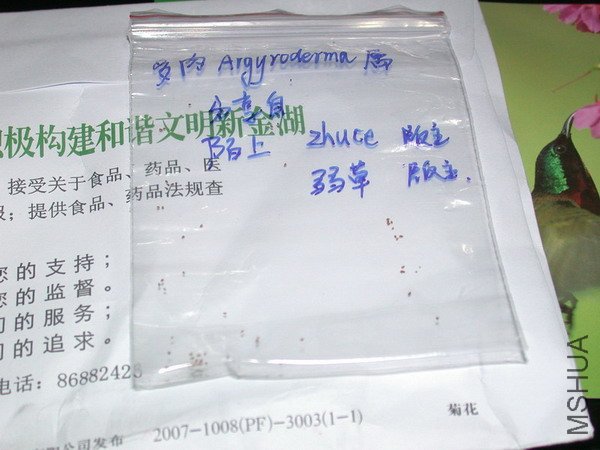 多肉 Argyroderma 属
分享自
陌上 zhuce 版主
弱草 版主.
积极构建和谐文明新金湖
接受关于食品、药品、医
报；提供食品、药品法规查
您的支持；
您的监督。
们的服务；
们的追求。
电话：86882426
公司发布 2007-1008(PF)-3003(1-1)
菊花
MSHUA